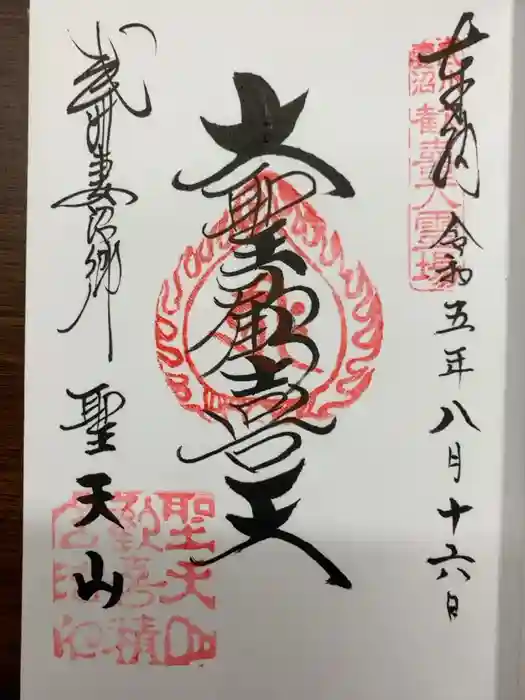 奉拝 令和五年八月十六日
武州慶沼 歓喜天霊場
大聖歓喜天
武州妻沼郷 聖天山
聖天山
歓喜